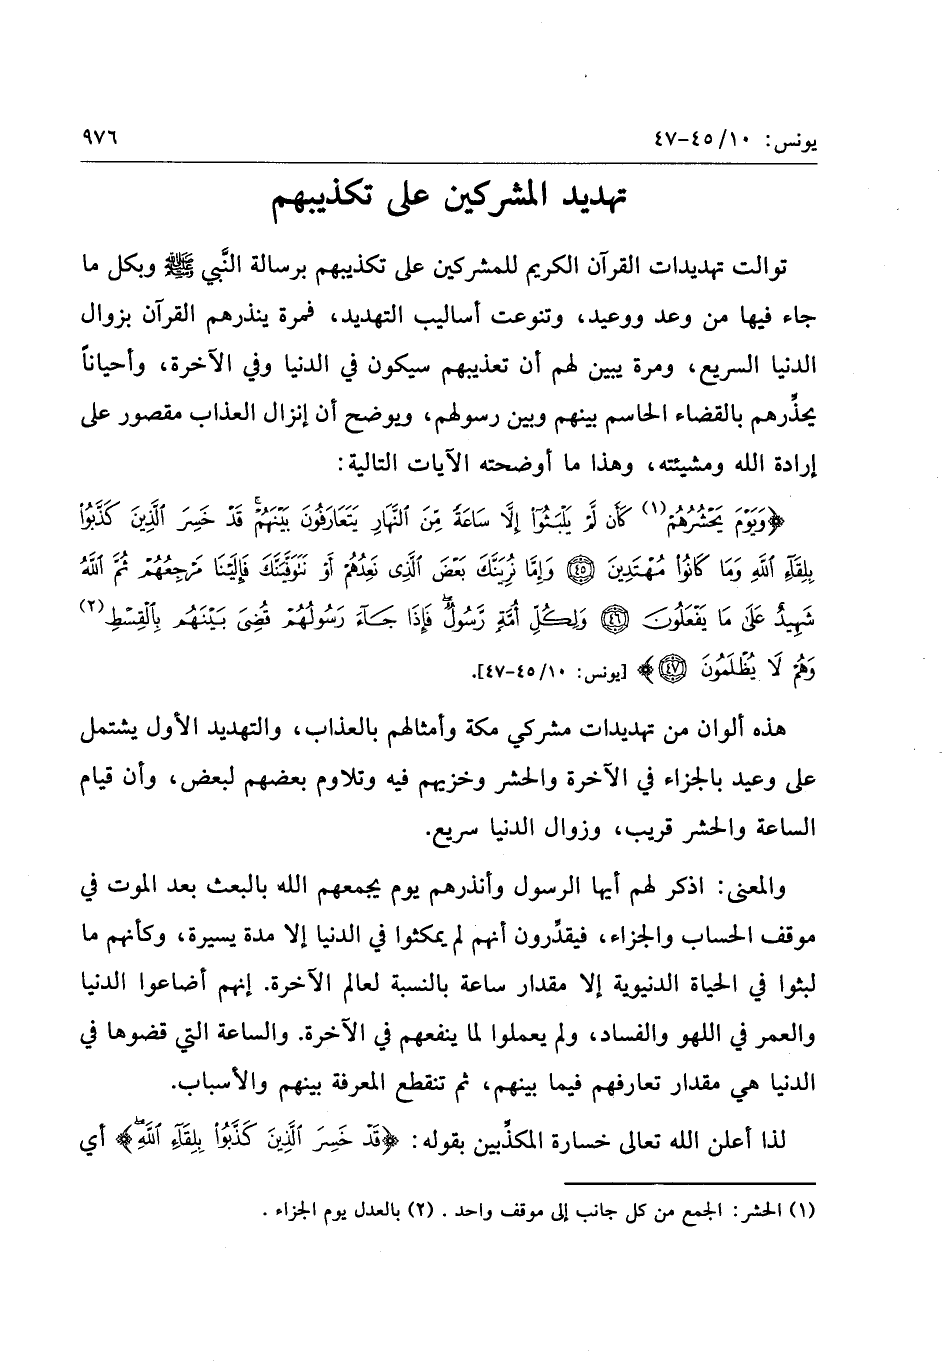 يونس: ١٠/ ٤٥-٤٧
٩٧٦
تهديد المشركين على تكذيبهم
توالت تهديدات القرآن الكريم للمشركين على تكذيبهم برسالة النَّبي ﷺ وبكل ما
جاء فيها من وعد ووعيد، وتنوعت أساليب التهديد، فمرة ينذرهم القرآن بزوال
الدنيا السريع، ومرة يبين لهم أن تعذيبهم سيكون في الدنيا وفي الآخرة، وأحياناً
يحذِّرهم بالقضاء الحاسم بينهم وبين رسولهم، ويوضح أن إنزال العذاب مقصور على
إرادة الله ومشيئته، وهذا ما أوضحته الآيات التالية:
﴿وَيَوْمَ يَحْشُرُهُمْ (١) كَأَن لَّمْ يَلْبَثُوٓا۟ إِلَّا سَاعَةً مِّنَ ٱلنَّهَارِ يَتَعَارَفُونَ بَيْنَهُمْ ۚ قَدْ خَسِرَ ٱلَّذِينَ كَذَّبُوا۟
بِلِقَآءِ ٱللَّهِ وَمَا كَانُوا۟ مُهْتَدِينَ ﴿٤٥﴾ وَإِمَّا نُرِيَنَّكَ بَعْضَ ٱلَّذِى نَعِدُهُمْ أَوْ نَتَوَفَّيَنَّكَ فَإِلَيْنَا مَرْجِعُهُمْ ثُمَّ ٱللَّهُ
شَهِيدٌ عَلَىٰ مَا يَفْعَلُونَ ﴿٤٦﴾ وَلِكُلِّ أُمَّةٍ رَّسُولٌ ۖ فَإِذَا جَآءَ رَسُولُهُمْ قُضِىَ بَيْنَهُم بِٱلْقِسْطِ (٢)
وَهُمْ لَا يُظْلَمُونَ ﴿٤٧﴾﴾ [يونس: ١٠/ ٤٥-٤٧].
هذه ألوان من تهديدات مشركي مكة وأمثالهم بالعذاب، والتهديد الأول يشتمل
على وعيد بالجزاء في الآخرة والحشر وخزيهم فيه وتلاوم بعضهم لبعض، وأن قيام
الساعة والحشر قريب، وزوال الدنيا سريع.
والمعنى: اذكر لهم أيها الرسول وأنذرهم يوم يجمعهم الله بالبعث بعد الموت في
موقف الحساب والجزاء، فيقدِّرون أنهم لم يمكثوا في الدنيا إلا مدة يسيرة، وكأنهم ما
لبثوا في الحياة الدنيوية إلا مقدار ساعة بالنسبة لعالم الآخرة. إنهم أضاعوا الدنيا
والعمر في اللهو والفساد، ولم يعملوا لما ينفعهم في الآخرة. والساعة التي قضوها في
الدنيا هي مقدار تعارفهم فيما بينهم، ثم تنقطع المعرفة بينهم والأسباب.
لذا أعلن الله تعالى خسارة المكذِّبين بقوله: ﴿قَدْ خَسِرَ ٱلَّذِينَ كَذَّبُوا۟ بِلِقَآءِ ٱللَّهِ ۖ﴾ أي
(١) الحشر: الجمع من كل جانب إلى موقف واحد. (٢) بالعدل يوم الجزاء.